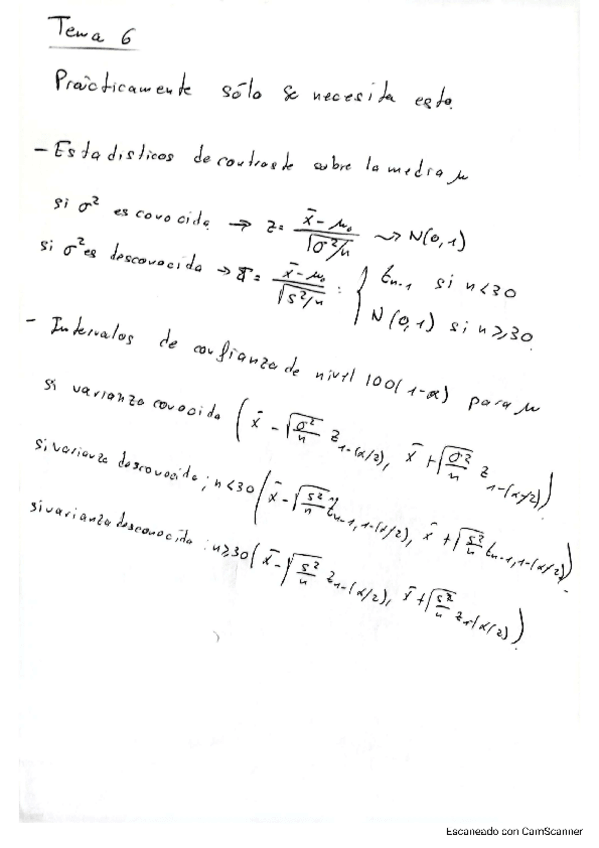 Tema 6
Prácticamente sólo se necesita esto.
- Estadísticos de contraste sobre la media μ
si σ² es conocida → z = (x̄ - μ₀)/√(σ²/n) ⇝ N(0,1)
si σ² es desconocida → T = (x̄ - μ₀)/√(s²/n) : { tₙ₋₁ si n<30
N(0,1) si n≥30
- Intervalos de confianza de nivel 100(1-α) para μ
si varianza conocida (x̄ - √(σ²/n) z₁₋(α/2), x̄ + √(σ²/n) z₁₋(α/2))
si varianza desconocida; n<30 (x̄ - √(s²/n) tₙ₋₁,₁₋(α/2), x̄ + √(s²/n) tₙ₋₁,₁₋(α/2))
si varianza desconocida: n≥30 (x̄ - √(s²/n) z₁₋(α/2), x̄ + √(s²/n) z₁₋(α/2))
Escaneado con CamScanner